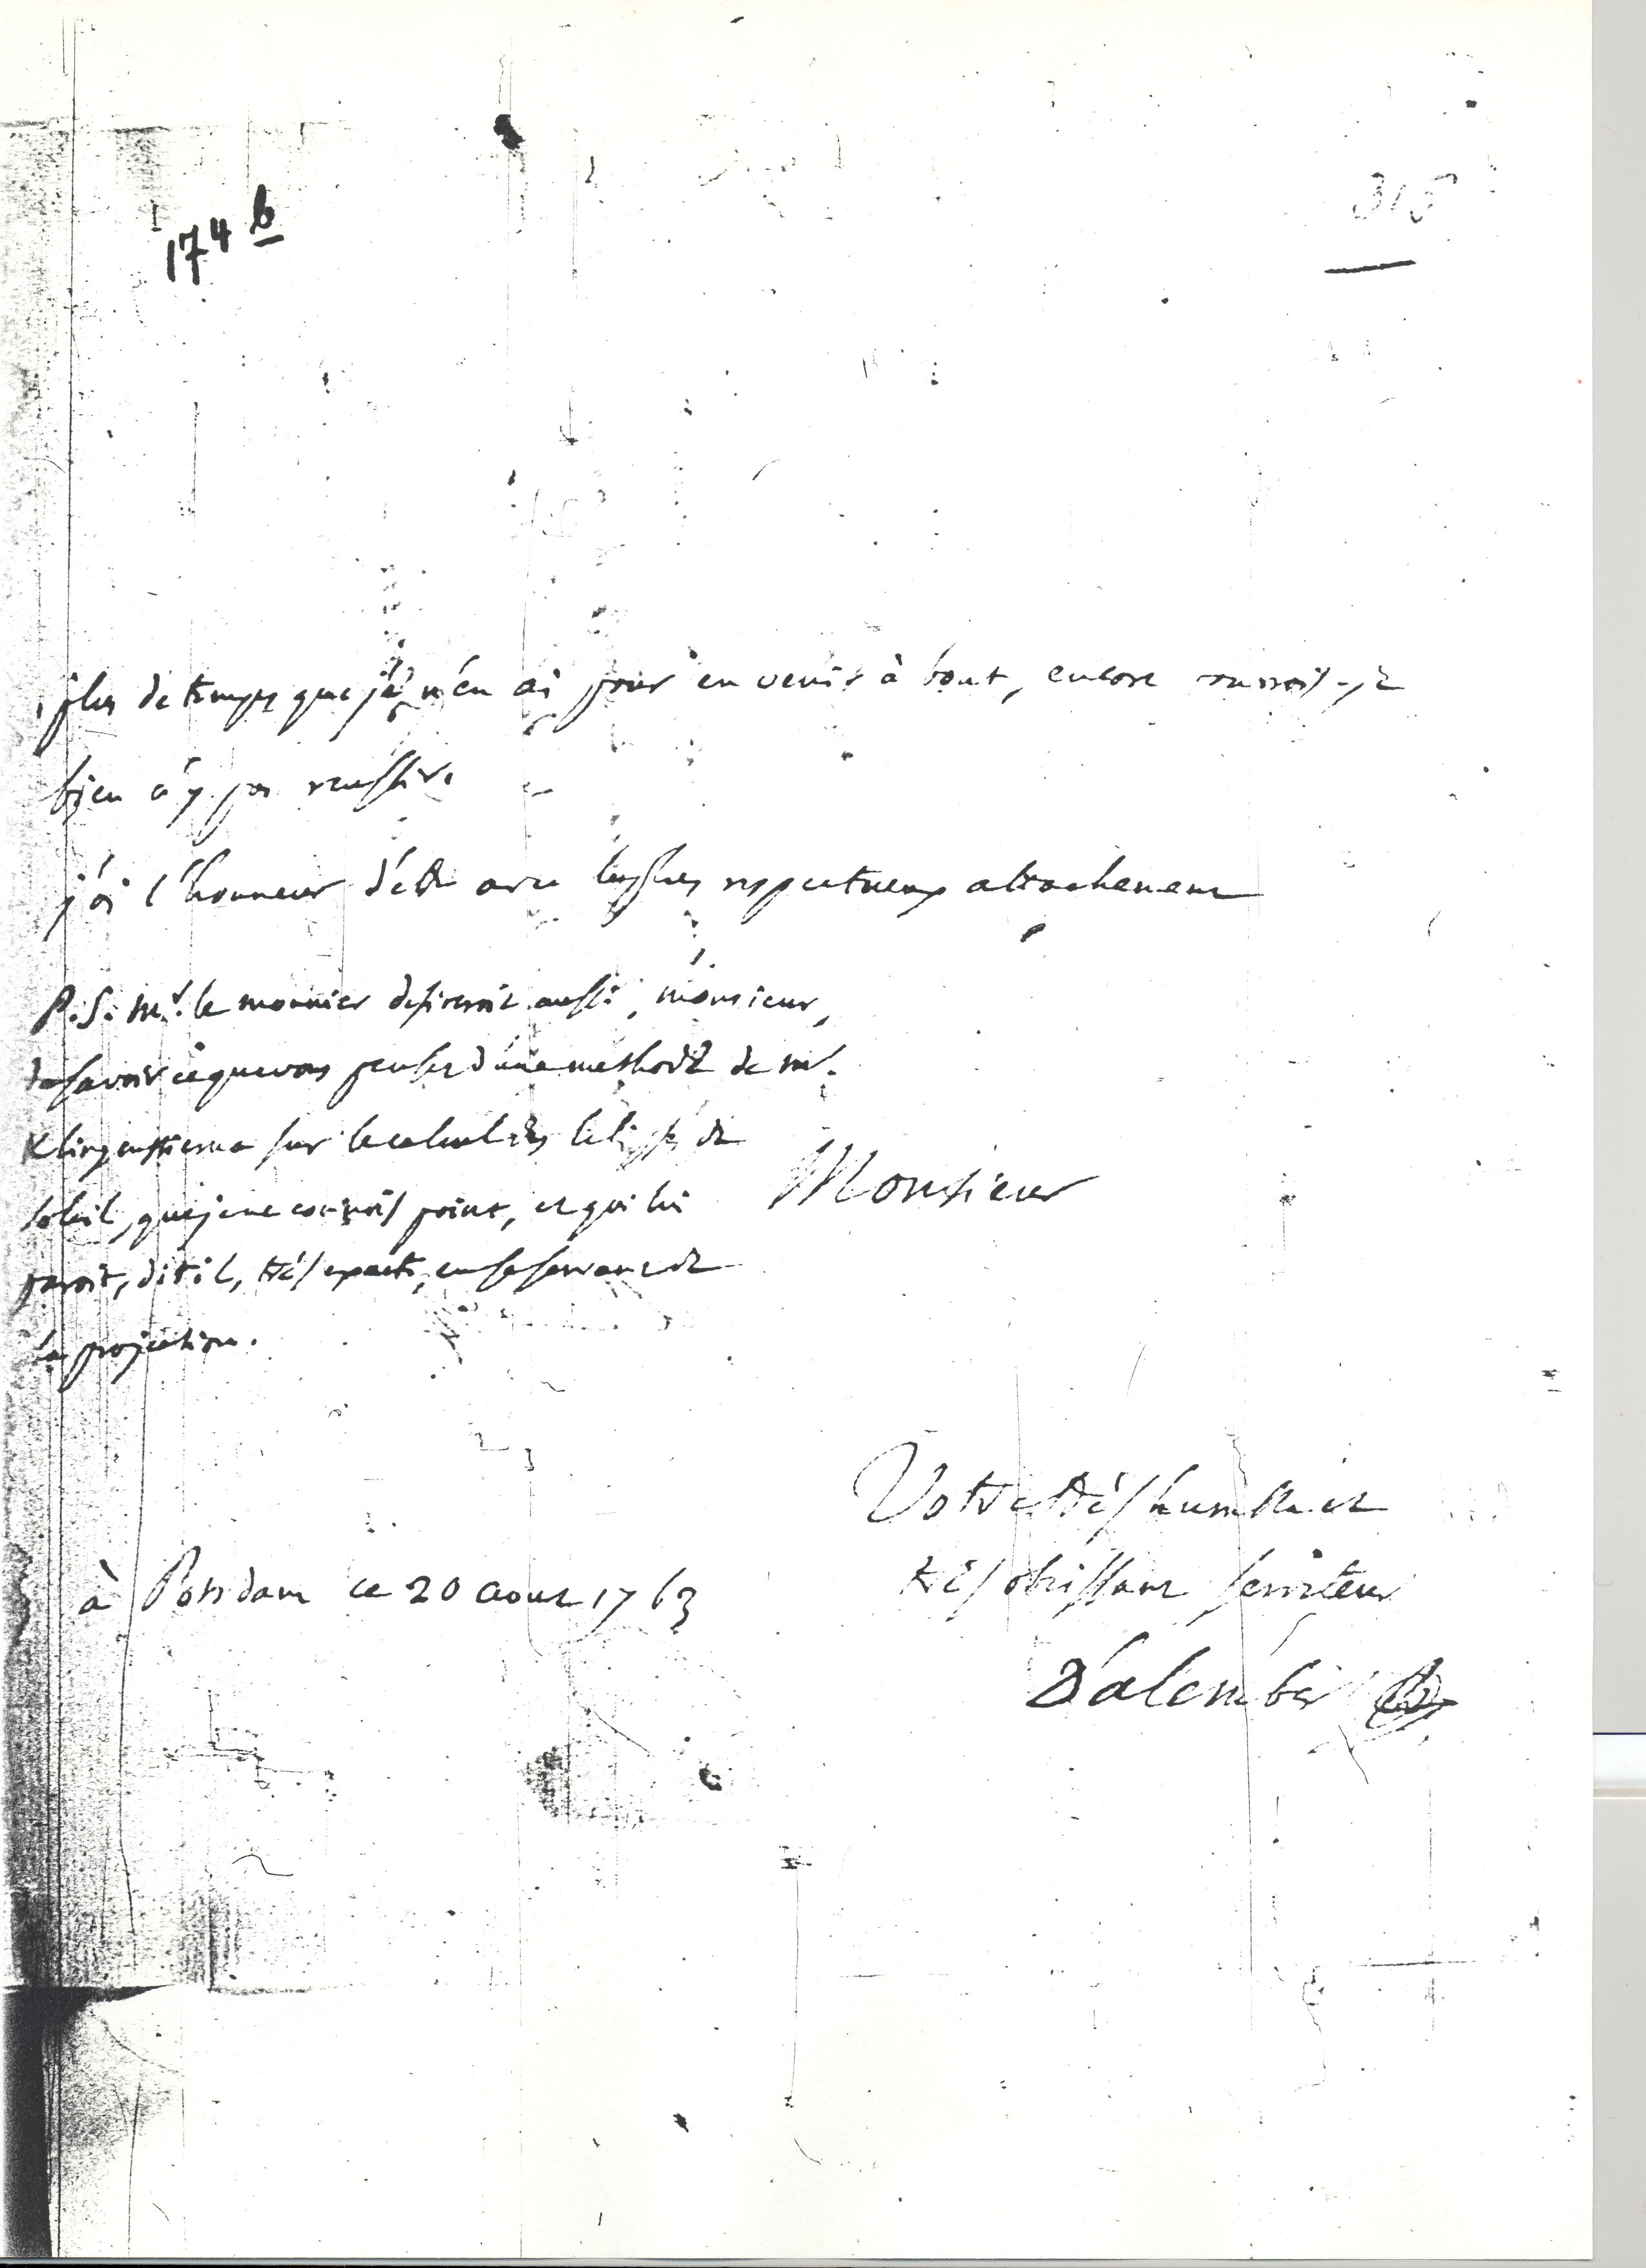 174 b
315
plus de temps que je n'en ai pour en venir à bout, encore courrois-je
bien à y pas reussir.
j'ai l'honneur d'être avec le plus respectueux attachement
P.S. Mr. le monnier desireroit aussi, monsieur,
de savoir ce que vous pensez d'une methode de mr.
Klingenstierna sur le calcul des eclipses de
soleil, que je ne connois point, et qui lui
paroit, dit il, très exacte, en se servant de
la projection.
Monsieur
Votre très humble et
très obeissant serviteur
à Potsdam ce 20 aout 1763
D'alembert